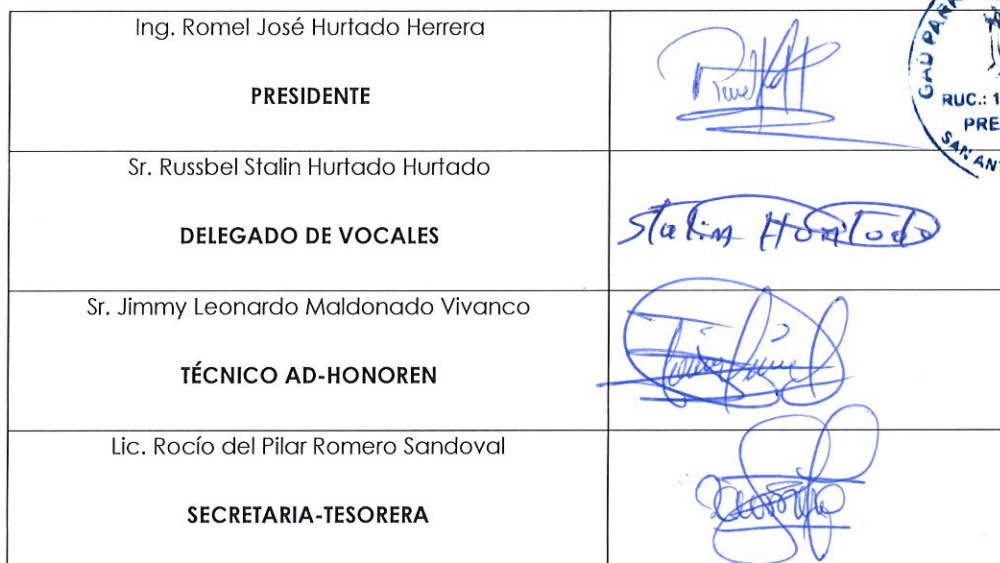 Ing. Romel José Hurtado Herrera
PRESIDENTE
GAD PARR
RUC.: 1
PRE
SAN ANT
Sr. Russbel Stalin Hurtado Hurtado
DELEGADO DE VOCALES
Stalin Hurtado
Sr. Jimmy Leonardo Maldonado Vivanco
TÉCNICO AD-HONOREN
Lic. Rocío del Pilar Romero Sandoval
SECRETARIA-TESORERA